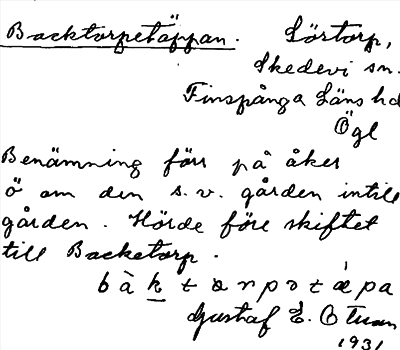 Backtorpetäppan. Sörtorp,
Skedevi sn.
Finspånga Läns hd
Ögl
Benämning förr på åker
ö om den s.v. gården intill
gården. Hörde före skiftet
till Backetorp.
bàk tɷrpɜtǽpa
Gustaf E. Oman
1931